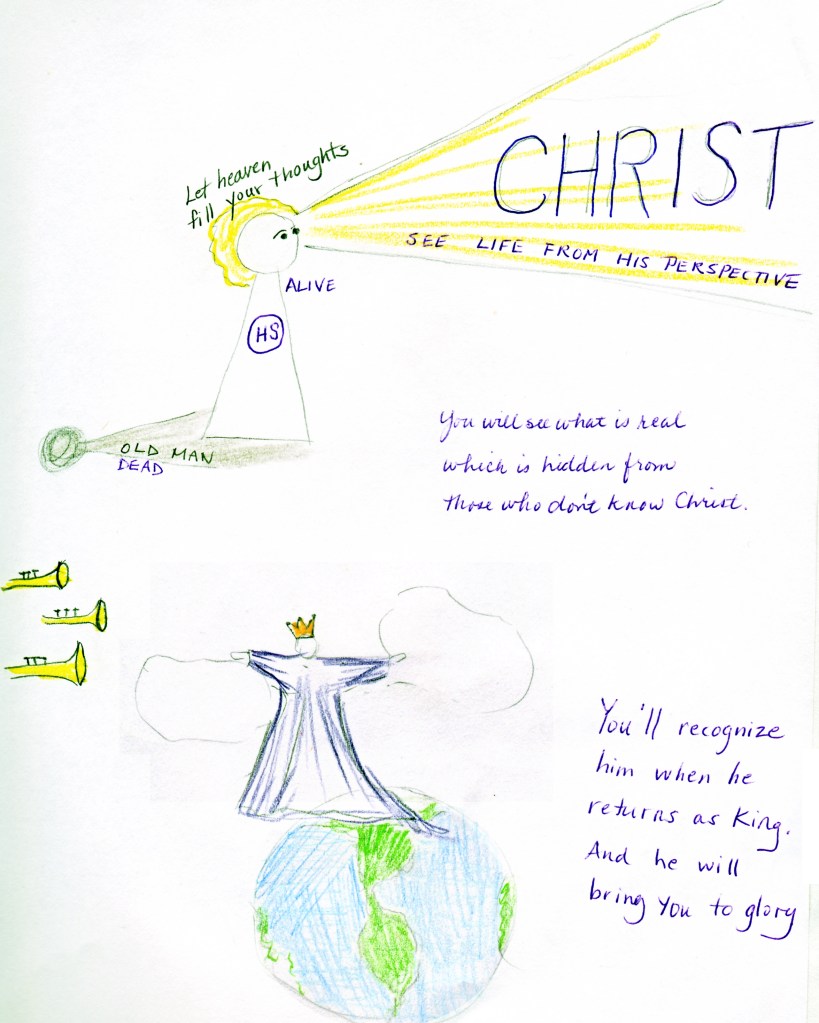 Let heaven
fill your thoughts
CHRIST
SEE LIFE FROM HIS PERSPECTIVE
ALIVE
HS
OLD MAN
DEAD
You will see what is real
which is hidden from
those who don't know Christ.
You'll recognize
him when he
returns as King.
And he will
bring you to glory